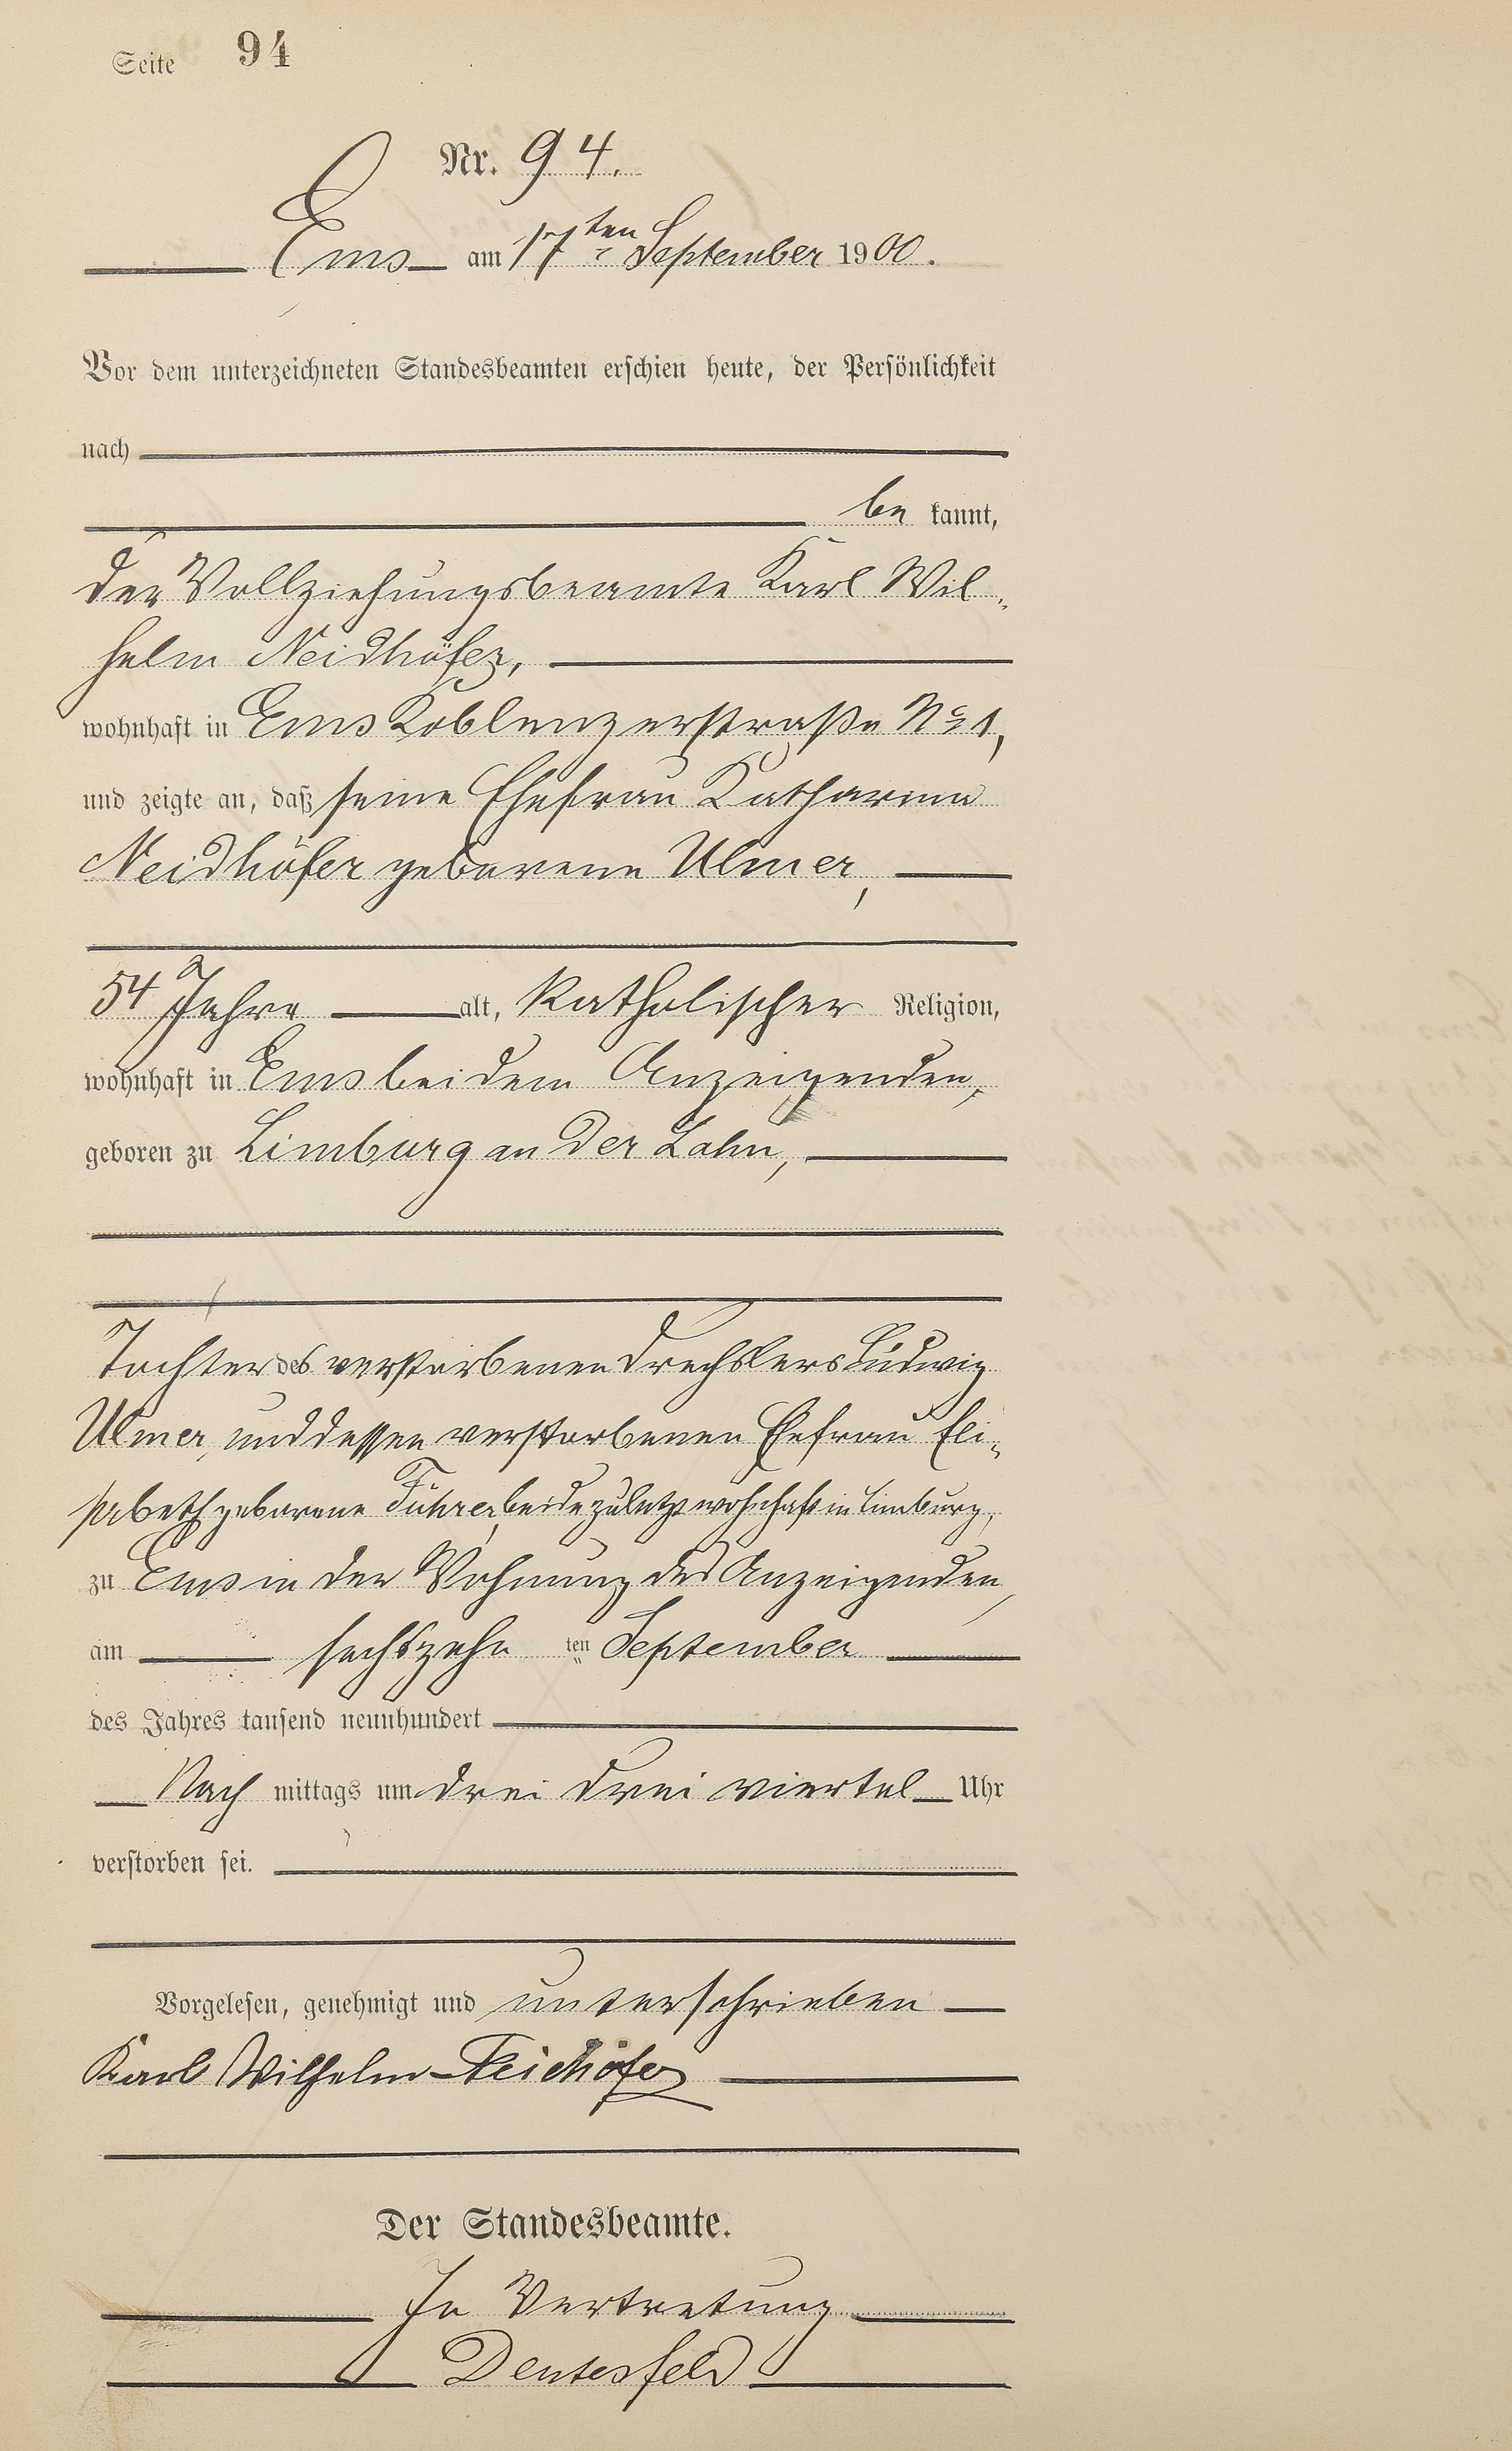 Seite 94
Nr. 94.
Ems am 17ten September 1900.
Vor dem unterzeichneten Standesbeamten erschien heute, der Persönlichkeit
nach
be kannt,
der Vollziehungsbeamte Karl Wil-
helm Neidhöfer,
wohnhaft in Ems Koblenzerstraße No 1,
und zeigte an, daß seine Ehefrau Katharina
Neidhöfer geborene Ulmer,
54 Jahre alt, katholischer Religion,
wohnhaft in Ems bei dem Anzeigenden,
geboren zu Limburg an der Lahn,
Tochter des verstorbenen Drechslers Ludwig
Ulmer, und dessen verstorbenen Ehefrau Eli-
sabeth geborene Führer, beide zuletzt wohnhaft in Limburg,
zu Ems in der Wohnung des Anzeigenden,
am sechszehn ten September
des Jahres tausend neunhundert
Nach mittags um drei drei viertel Uhr
verstorben sei.
Vorgelesen, genehmigt und unterschrieben
Karl Wilhelm Neidhöfer
Der Standesbeamte.
In Vertretung